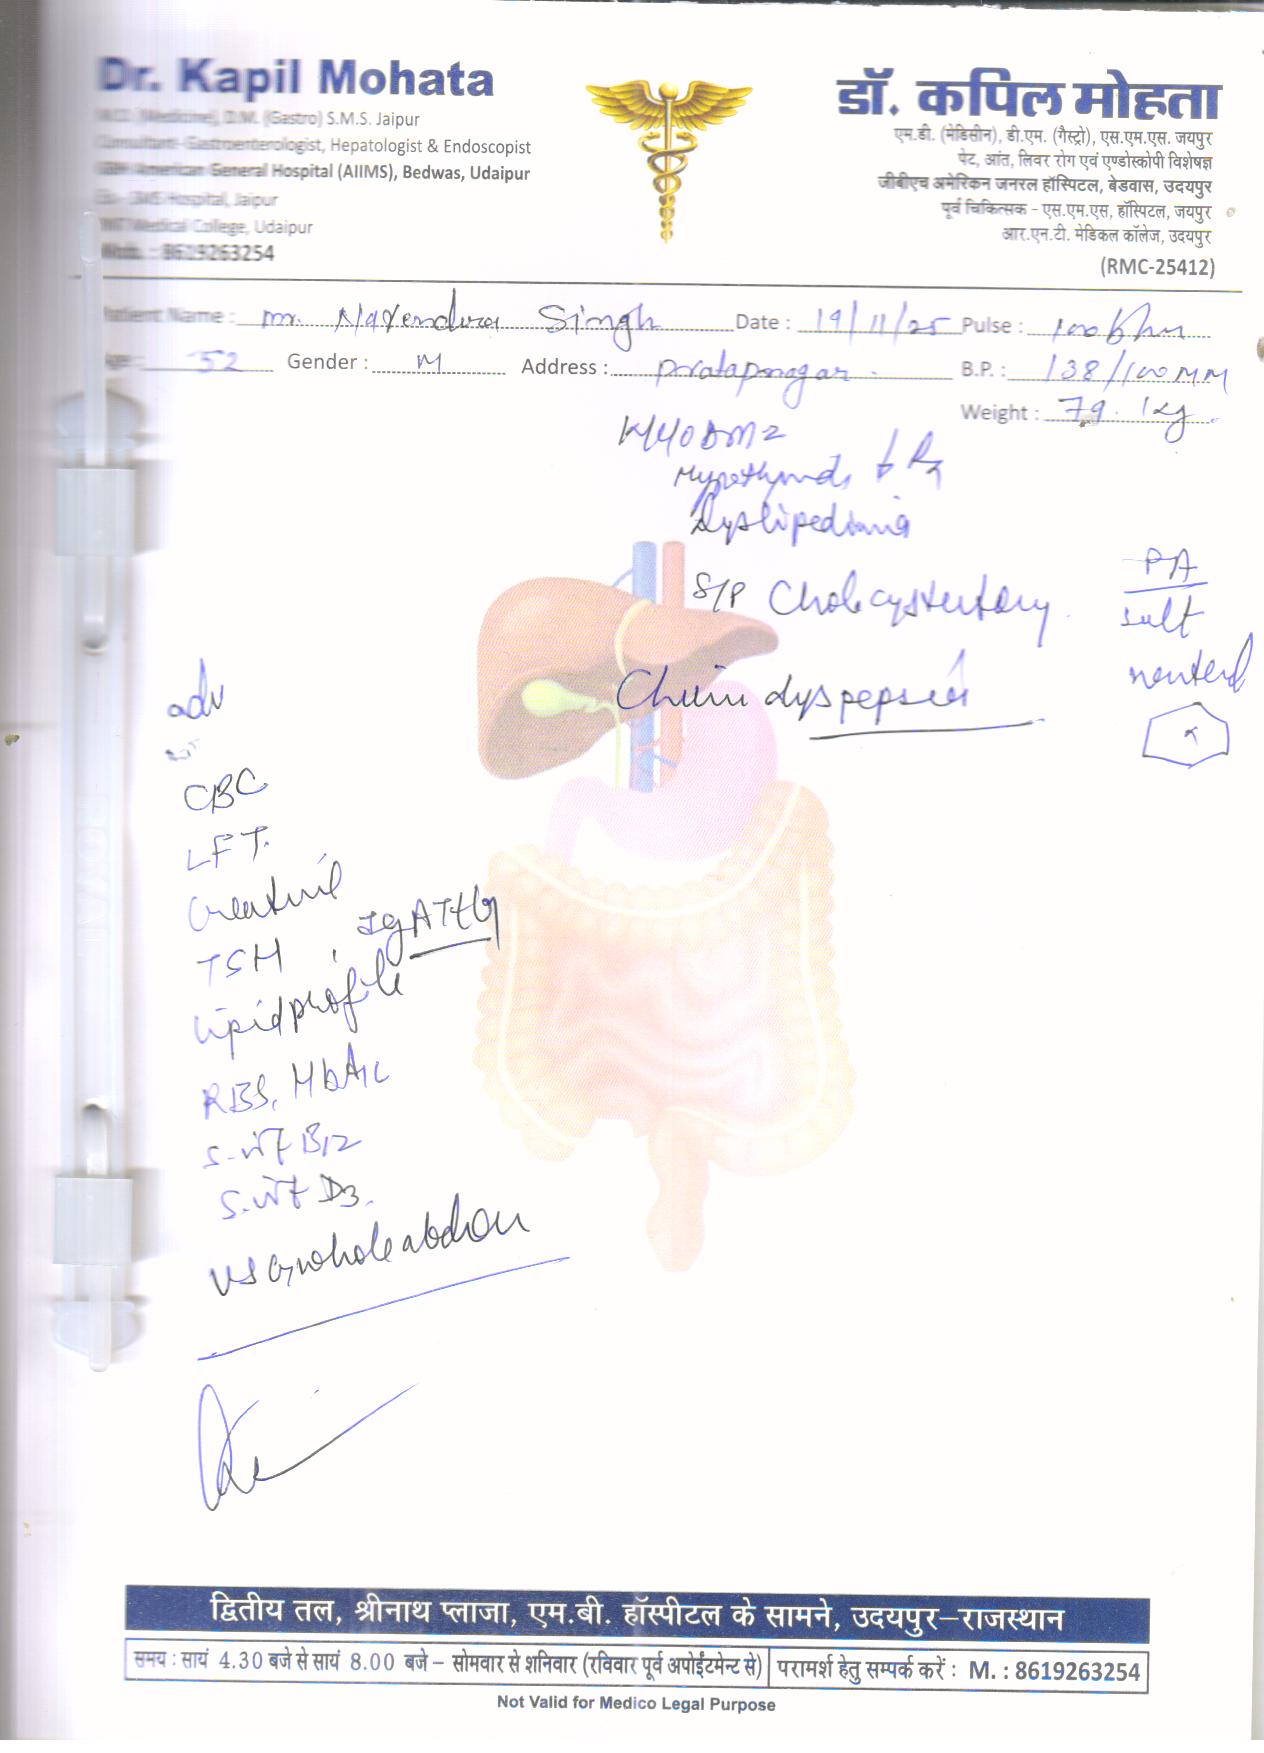 Dr. Kapil Mohata
M.D. (Medicine), D.M. (Gastro) S.M.S. Jaipur
Consultant- Gastroenterologist, Hepatologist & Endoscopist
GBH American General Hospital (AIIMS), Bedwas, Udaipur
Ex.- SMS Hospital, Jaipur
RNT Medical College, Udaipur
Mob. : 8619263254
डॉ. कपिल मोहता
एम.डी. (मेडिसीन), डी.एम. (गैस्ट्रो), एस.एम.एस. जयपुर
पेट, आंत, लिवर रोग एवं एण्डोस्कोपी विशेषज्ञ
जीबीएच अमेरिकन जनरल हॉस्पिटल, बेडवास, उदयपुर
पूर्व चिकित्सक - एस.एम.एस, हॉस्पिटल, जयपुर
आर.एन.टी. मेडिकल कॉलेज, उदयपुर
(RMC-25412)
Patient Name : mr. Narendra Singh Date : 19/11/25 Pulse : 100 bhm
Age : 52 Gender : M Address : pratapnagar. B.P. : 138/100 MM
Weight : 79. kg
K/4/0 DM2
Dyslipedimia
S/P Cholecystectomy
PA
soft
dyspepsia
adv
CBC
LFT.
TSH, IgA TTG
lipid profile
RBS, HbA1c
S. vit B12
S. vit D3.
USG, whole abdomen
द्वितीय तल, श्रीनाथ प्लाजा, एम.बी. हॉस्पीटल के सामने, उदयपुर–राजस्थान
समय : सायं 4.30 बजे से सायं 8.00 बजे – सोमवार से शनिवार (रविवार पूर्व अपोईंटमेन्ट से) परामर्श हेतु सम्पर्क करें : M. : 8619263254
Not Valid for Medico Legal Purpose